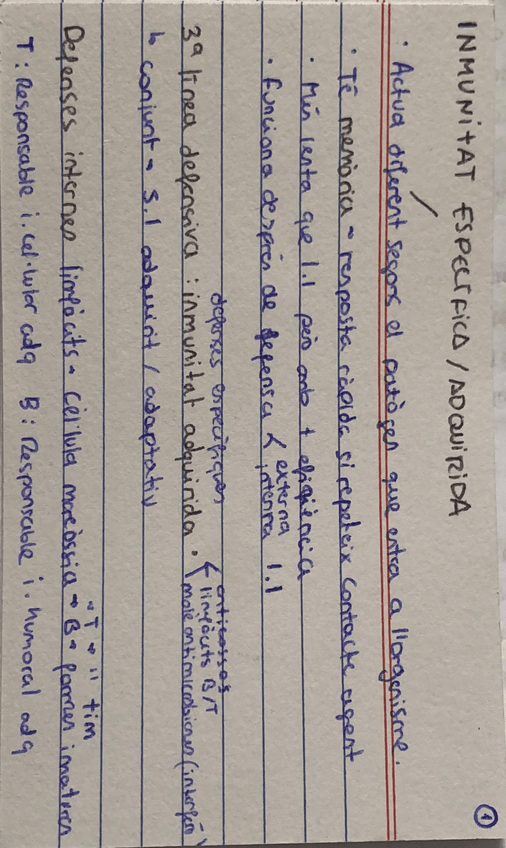 INMUNITAT ESPECÍFICA / ADQUIRIDA
1
· Actua diferent segons el patògen que entra a l'organisme.
· Té memòria → resposta ràpida si repeteix contacte agent
· Més lenta que 1.1 però amb + eficiència
· Funciona després de defensa < externa
interna 1.1
defenses específiques
3ª línea defensiva : inmunitat adquirida . < anticossos
limfòcits B/T
molè antimicrobianes (interferó)
↳ conjunt → S.I adquirit / adaptativ
Defenses internes limfòcits → cèl·lula mareòssia → B → formen i maturen
" T → " tim
T : Responsable i. cel·lular adq B : Responsable i. humoral adq